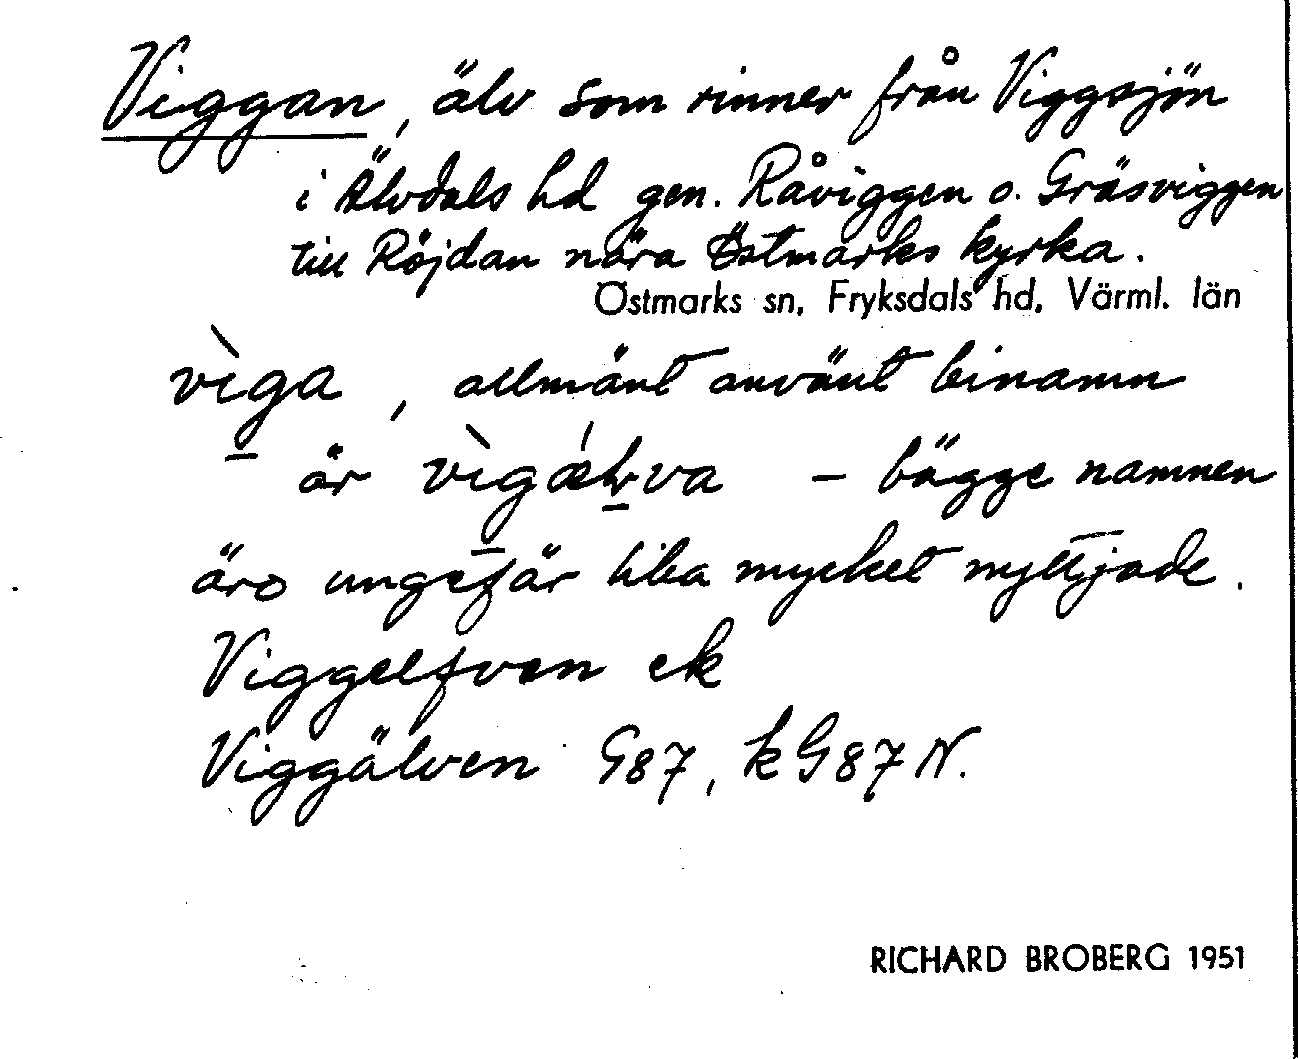 Viggan, älv som rinner från Viggsjön
i Älvdals hd gen. Råviggen o. Gräsviggen
till Röjdan nära Östmarks kyrka.
Östmarks sn, Fryksdals hd, Värml. län
vìga, allmänt använt binamn
är vìgǽḷva – bägge namnen
äro ungefär lika mycket nyttjade.
Viggelfven ek
Viggälven G87, kG87N.
RICHARD BROBERG 1951